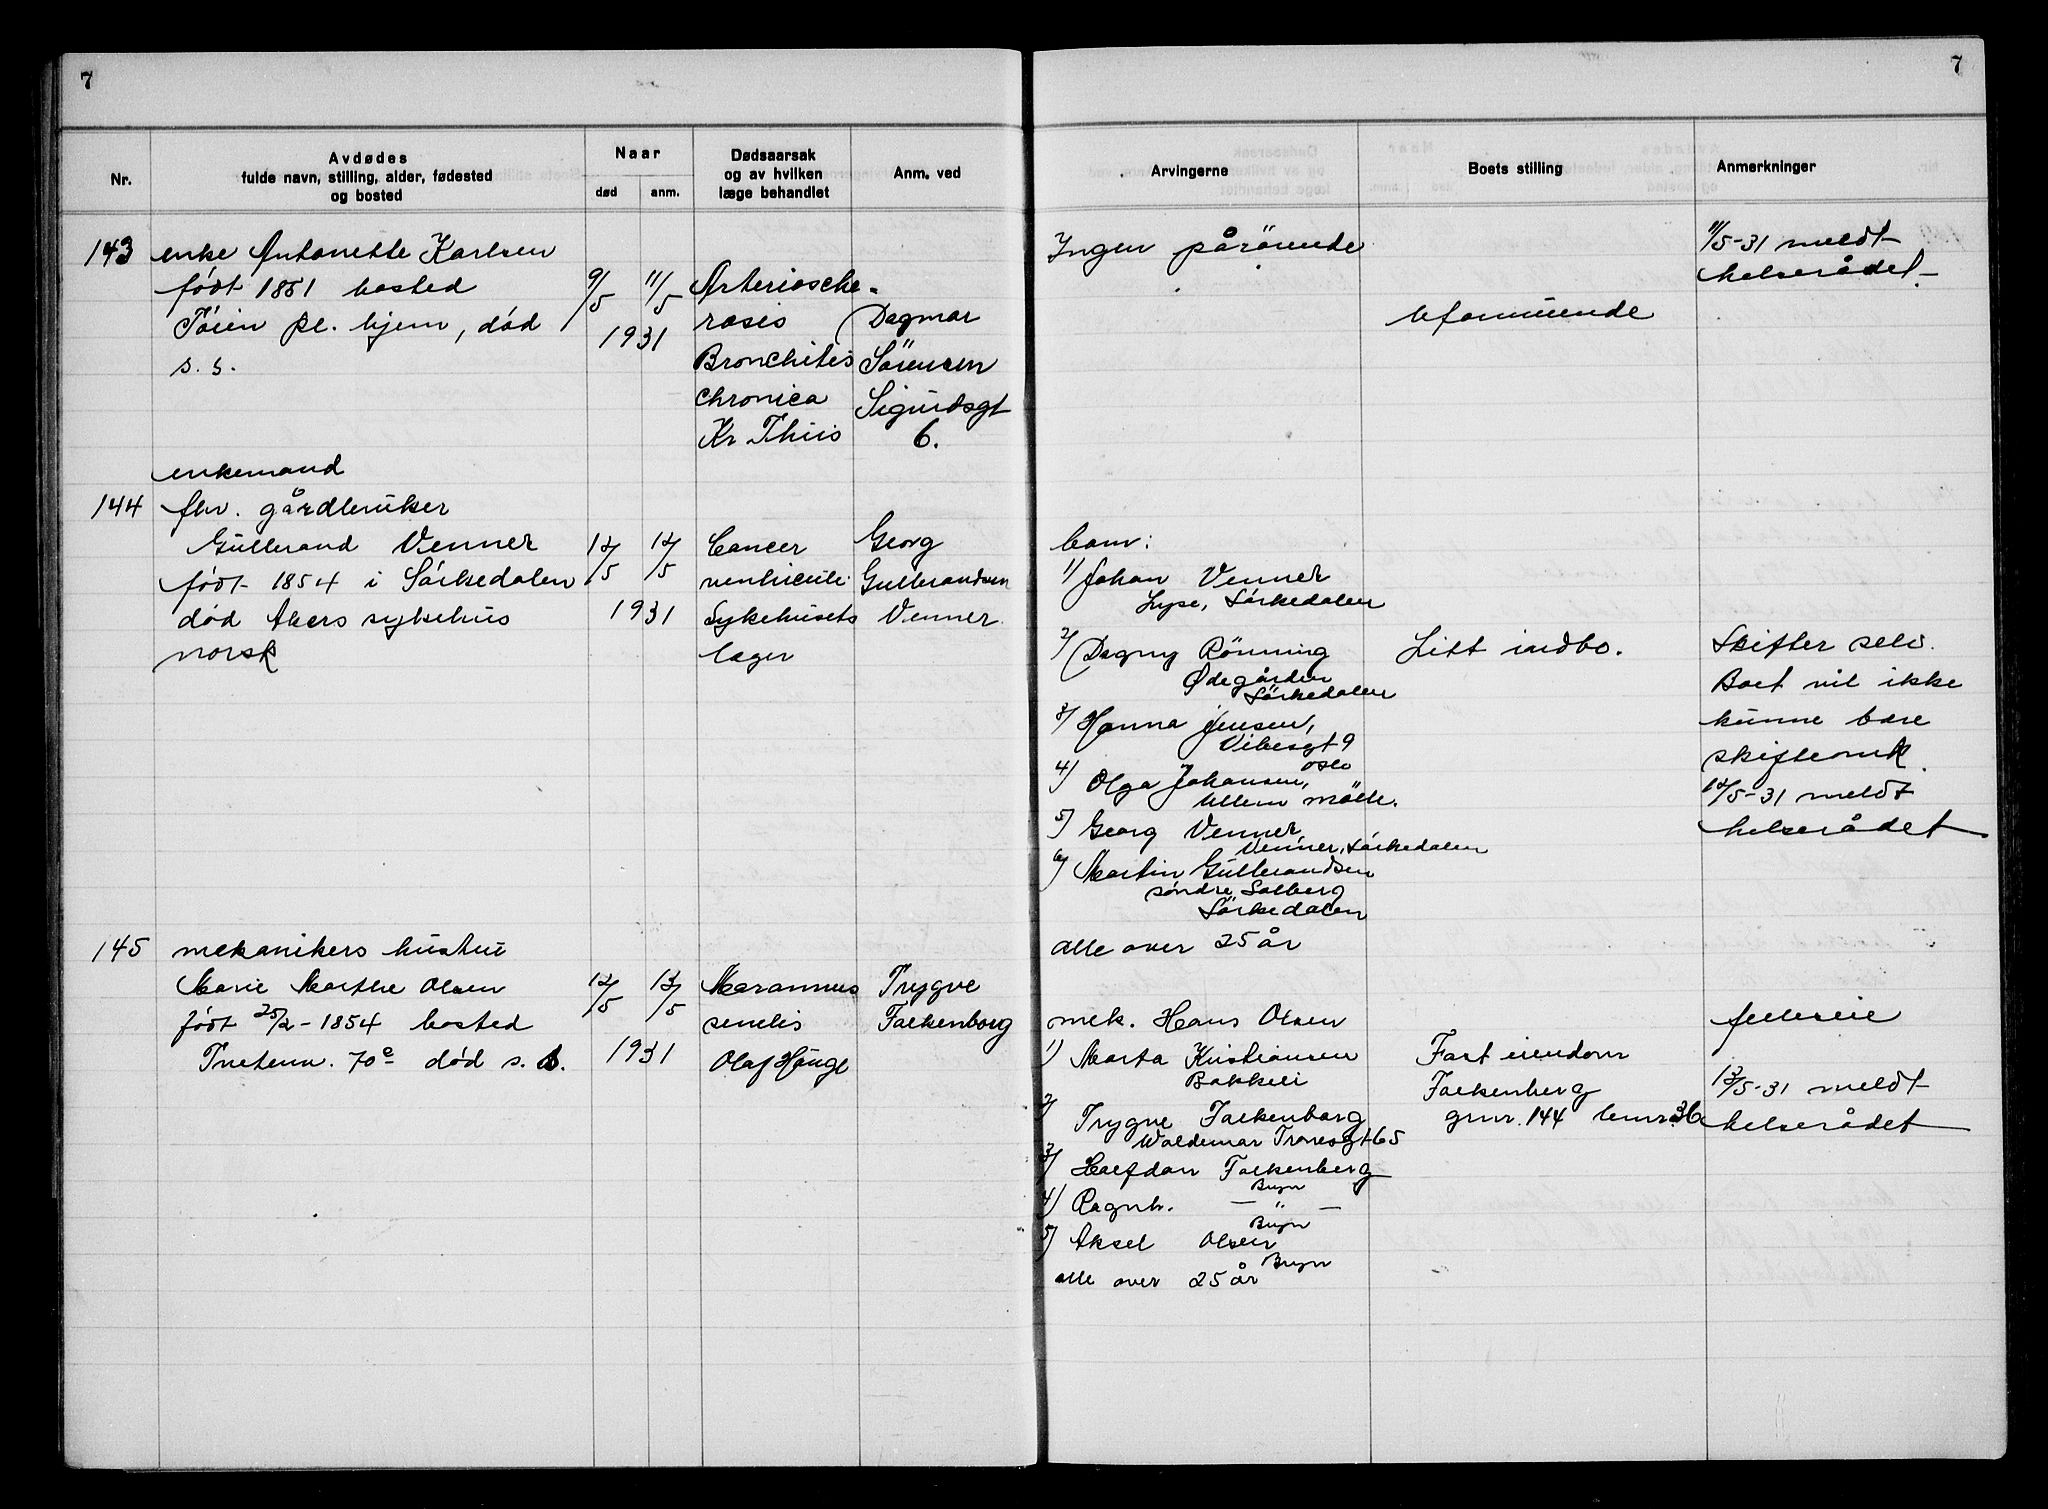 7
7
Nr.
Avdødes
fulde navn, stilling, alder, fødested
og bosted
Naar
død
anm.
Dødsaarsak
og av hvilken
læge behandlet
Anm. ved
Arvingerne
Boets stilling
Anmerkninger
143
enke Antonette Karlsen
født 1851 bosted
Töien pl. hjem, död
s. s.
9/5 11/5
1931
Arterioscle-
rosis
Bronchitis
chronica
Kr Thiis
Dagmar
Sörensen
Sigurdsgt
6.
Ingen pårörende
Uformuende
11/5-31 meldt
helserådet.
144
enkemand
fhv. gårdbruker
Gulbrand Venner
født 1854 i Sörkedalen
död Akers sykehus
norsk
12/5 12/5
1931
Cancer
ventriculi
Sykehusets
læger
Georg
Gulbrandsen
Venner.
barn:
1) Johan Venner
Lyse, Sörkedalen
2) Dagny Rönning
Ødegården
Sörkedalen
3) Hanna Jensen,
Vibesgt 9
Oslo
4) Olga Johansen,
Ullern mölle.
5) Georg Venner,
Venner, Sörkedalen
6) Martin Gulbrandsen
söndre Solberg
Sörkedalen
alle over 25 år
Litt indbo.
Skifter selv.
Boet vil ikke
kunne bære
skifteomk.
12/5-31 meldt
helserådet
145
mekanikers hustru
Marie Marthe Olsen
født 25/2-1854 bosted
Tvetenv. 70e död s. s.
12/5 13/5
1931
Marasmus
senilis
Olaf Hauge
Trygve
Falkenborg
mek. Hans Olsen
1) Marta Kristiansen
Bakkeli
2) Trygve Falkenborg
Waldemar Tranesgt 65
3) Halfdan Falkenberg
Bryn
4) Ragnh. — " —
Bryn
5) Aksel Olsen
Bryn
alle over 25 år
Fast eiendom
Falkenberg
grnr. 144 brnr. 36
fælleseie
13/5-31 meldt
helserådet